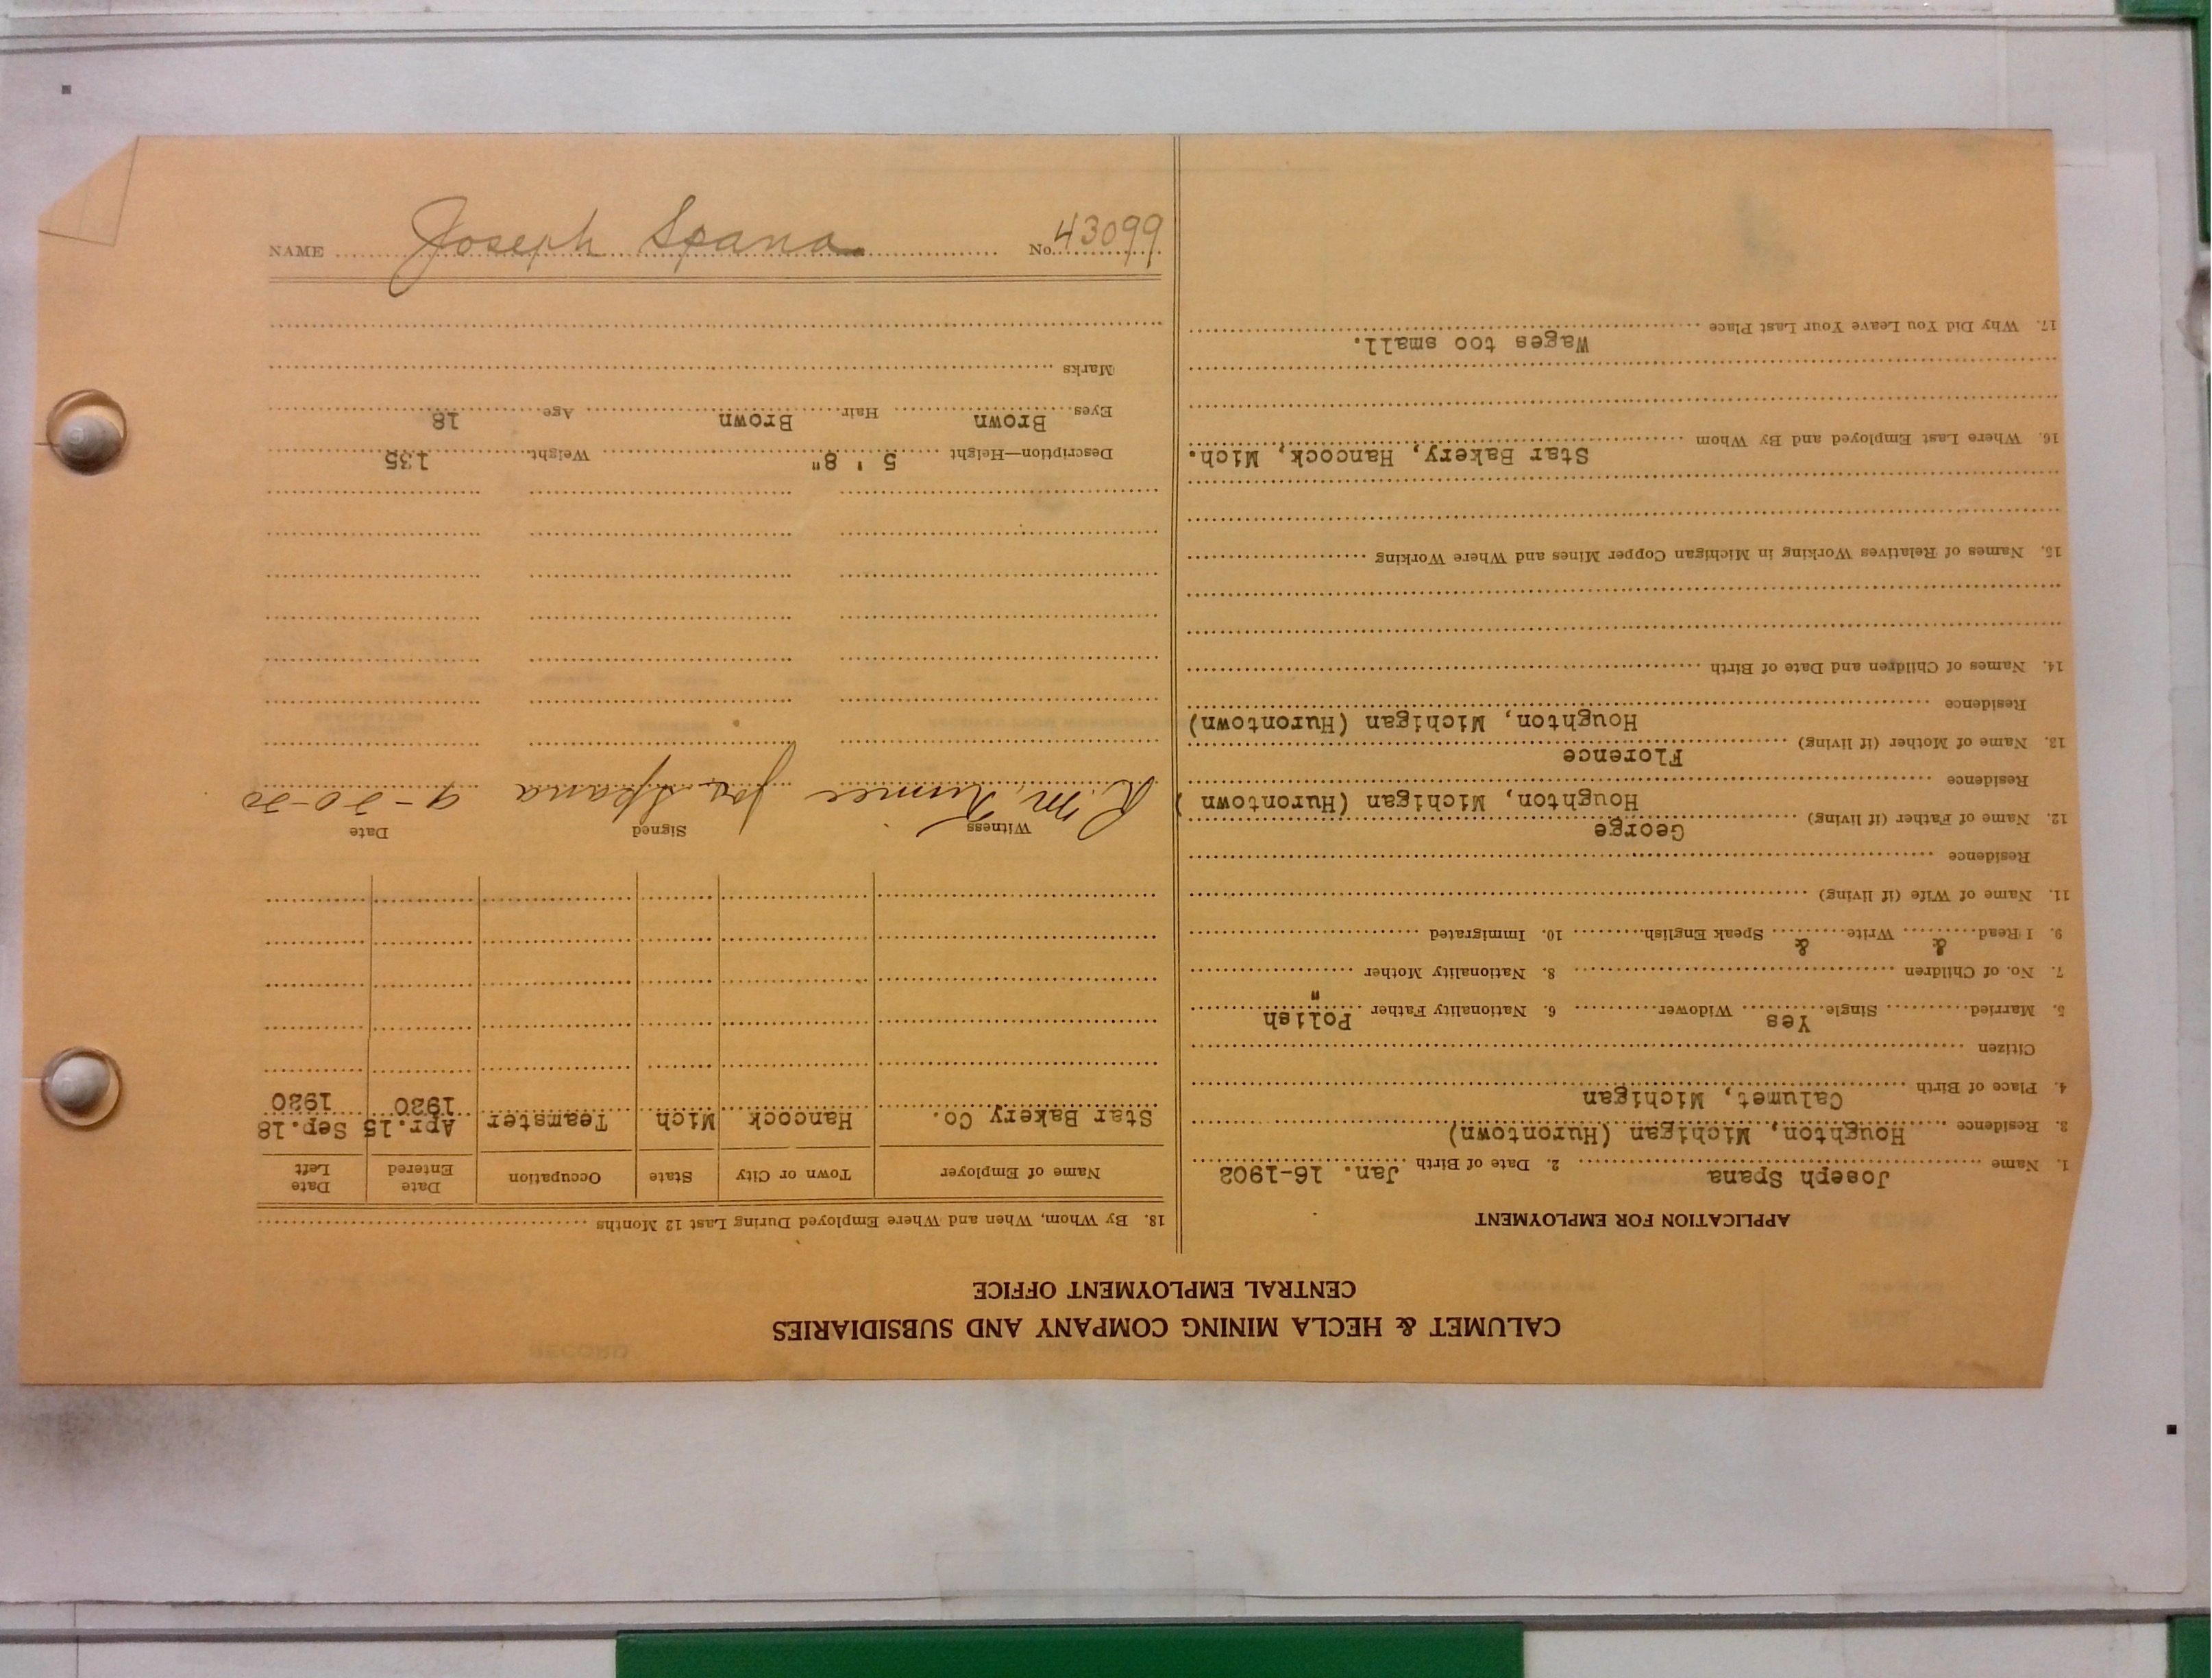 CALUMET & HECLA MINING COMPANY AND SUBSIDIARIES
CENTRAL EMPLOYMENT OFFICE
APPLICATION FOR EMPLOYMENT
1. Name Joseph Spana 2. Date of Birth Jan. 16-1902
3. Residence Houghton, Michigan (Hurontown)
4. Place of Birth Calumet, Michigan
Citizen
5. Married Single Yes Widower 6. Nationality Father Polish
7. No. of Children 8. Nationality Mother "
9. I Read & Write & Speak English 10. Immigrated
11. Name of Wife (if living)
Residence
12. Name of Father (if living) George
Residence Houghton, Michigan (Hurontown )
13. Name of Mother (if living) Florence
Residence Houghton, Michigan (Hurontown)
14. Names of Children and Date of Birth
15. Names of Relatives Working in Michigan Copper Mines and Where Working
16. Where Last Employed and By Whom Star Bakery, Hancock, Mich.
17. Why Did You Leave Your Last Place Wages too small.
18. By Whom, When and Where Employed During Last 12 Months
Name of Employer Town or City State Occupation Date Entered Date Left
Star Bakery Co. Hancock Mich Teamster Apr.15 1920 Sep.18 1920
Witness Signed Date
R. M. Jos Spana 9-20-20
Description—Height 5' 8" Weight 135
Eyes Brown Hair Brown Age 18
Marks
NAME Joseph Spana No. 43099